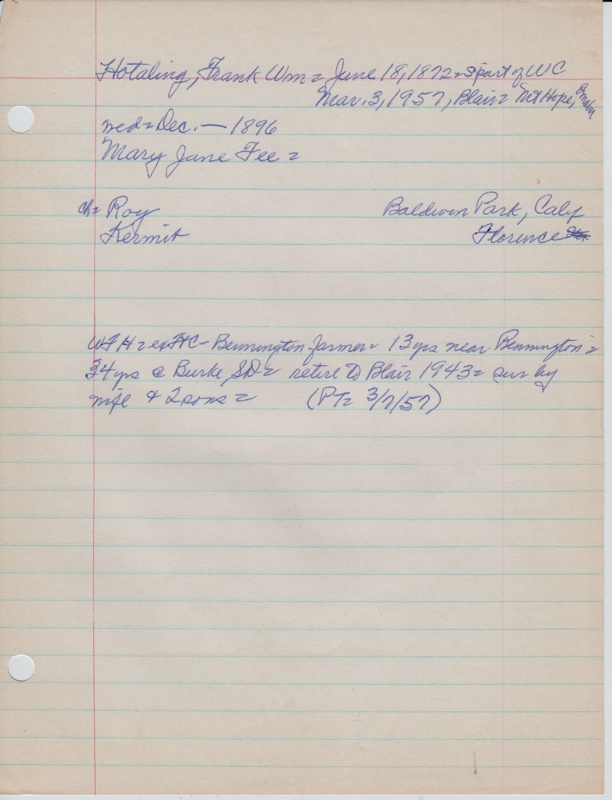 Hotaling, Frank Wm = June 18, 1872 = s part of WC
Mar. 3, 1957, Blair = Mt Hope, Omaha
med = Dec. — 1896
Mary Jane Fee =
ch = Roy Baldwin Park, Calif
Kermit Florence
WFH = ex HC - Bennington farmer = 13 yrs near Bennington =
34 yrs @ Burke SD = retire to Blair 1943 = sur by
wife & 2 sons = (PT = 3/7/57)